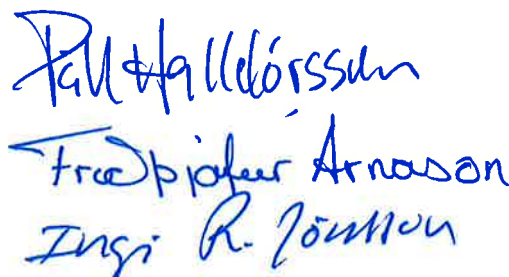 Páll Halldórsson
Friðþjófur Árnason
Ingi R. Jónsson